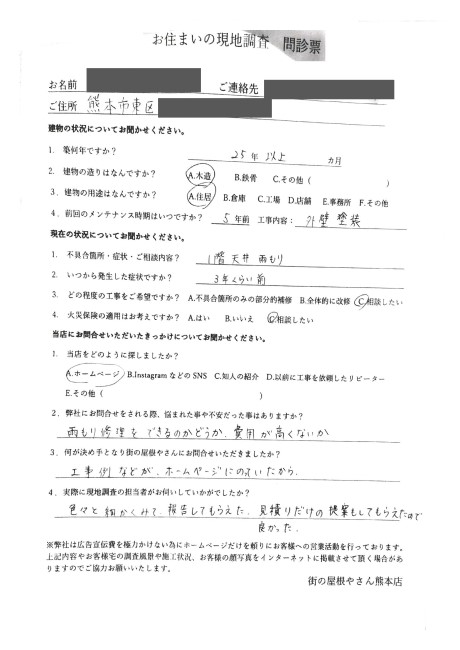 お住まいの現地調査 問診票
お名前
ご連絡先
ご住所 熊本市東区
建物の状況についてお聞かせください。
1. 築何年ですか？ 25年以上 カ月
2. 建物の造りはなんですか？ A.木造 B.鉄骨 C.その他（ ）
3. 建物の用途はなんですか？ A.住居 B.倉庫 C.工場 D.店舗 E.事務所 F.その他
4. 前回のメンテナンス時期はいつですか？ 5年前 工事内容： 外壁塗装
現在の状況についてお聞かせください。
1. 不具合箇所・症状・ご相談内容？ 1階天井雨もり
2. いつから発生した症状ですか？ 3年くらい前
3. どの程度の工事をご希望ですか？ A.不具合箇所のみの部分的補修 B.全体的に改修 C.相談したい
4. 火災保険の適用はお考えですか？ A.はい B.いいえ C.相談したい
当店にお問合せいただいたきっかけについてお聞かせください。
1. 当店をどのように探しましたか？
A.ホームページ B.Instagram などの SNS C.知人の紹介 D.以前に工事を依頼したリピーター
E.その他（ ）
2. 弊社にお問合せをされる際、悩まれた事や不安だった事はありますか？
雨もり修理をできるのかどうか、費用が高くないか
3. 何が決め手となり街の屋根やさんにお問合せいただきましたか？
工事例などが、ホームページにのっていたから。
4. 実際に現地調査の担当者がお伺いしていかがでしたか？
色々と細かくみて、報告してもらえた。見積りだけの提案もしてもらえたので
良かった。
※弊社は広告宣伝費を極力かけない為にホームページだけを頼りにお客様への営業活動を行っております。
上記内容やお客様宅の調査風景や施工状況、お客様の顔写真をインターネットに掲載させて頂く場合があ
りますのでご協力お願いいたします。
街の屋根やさん熊本店